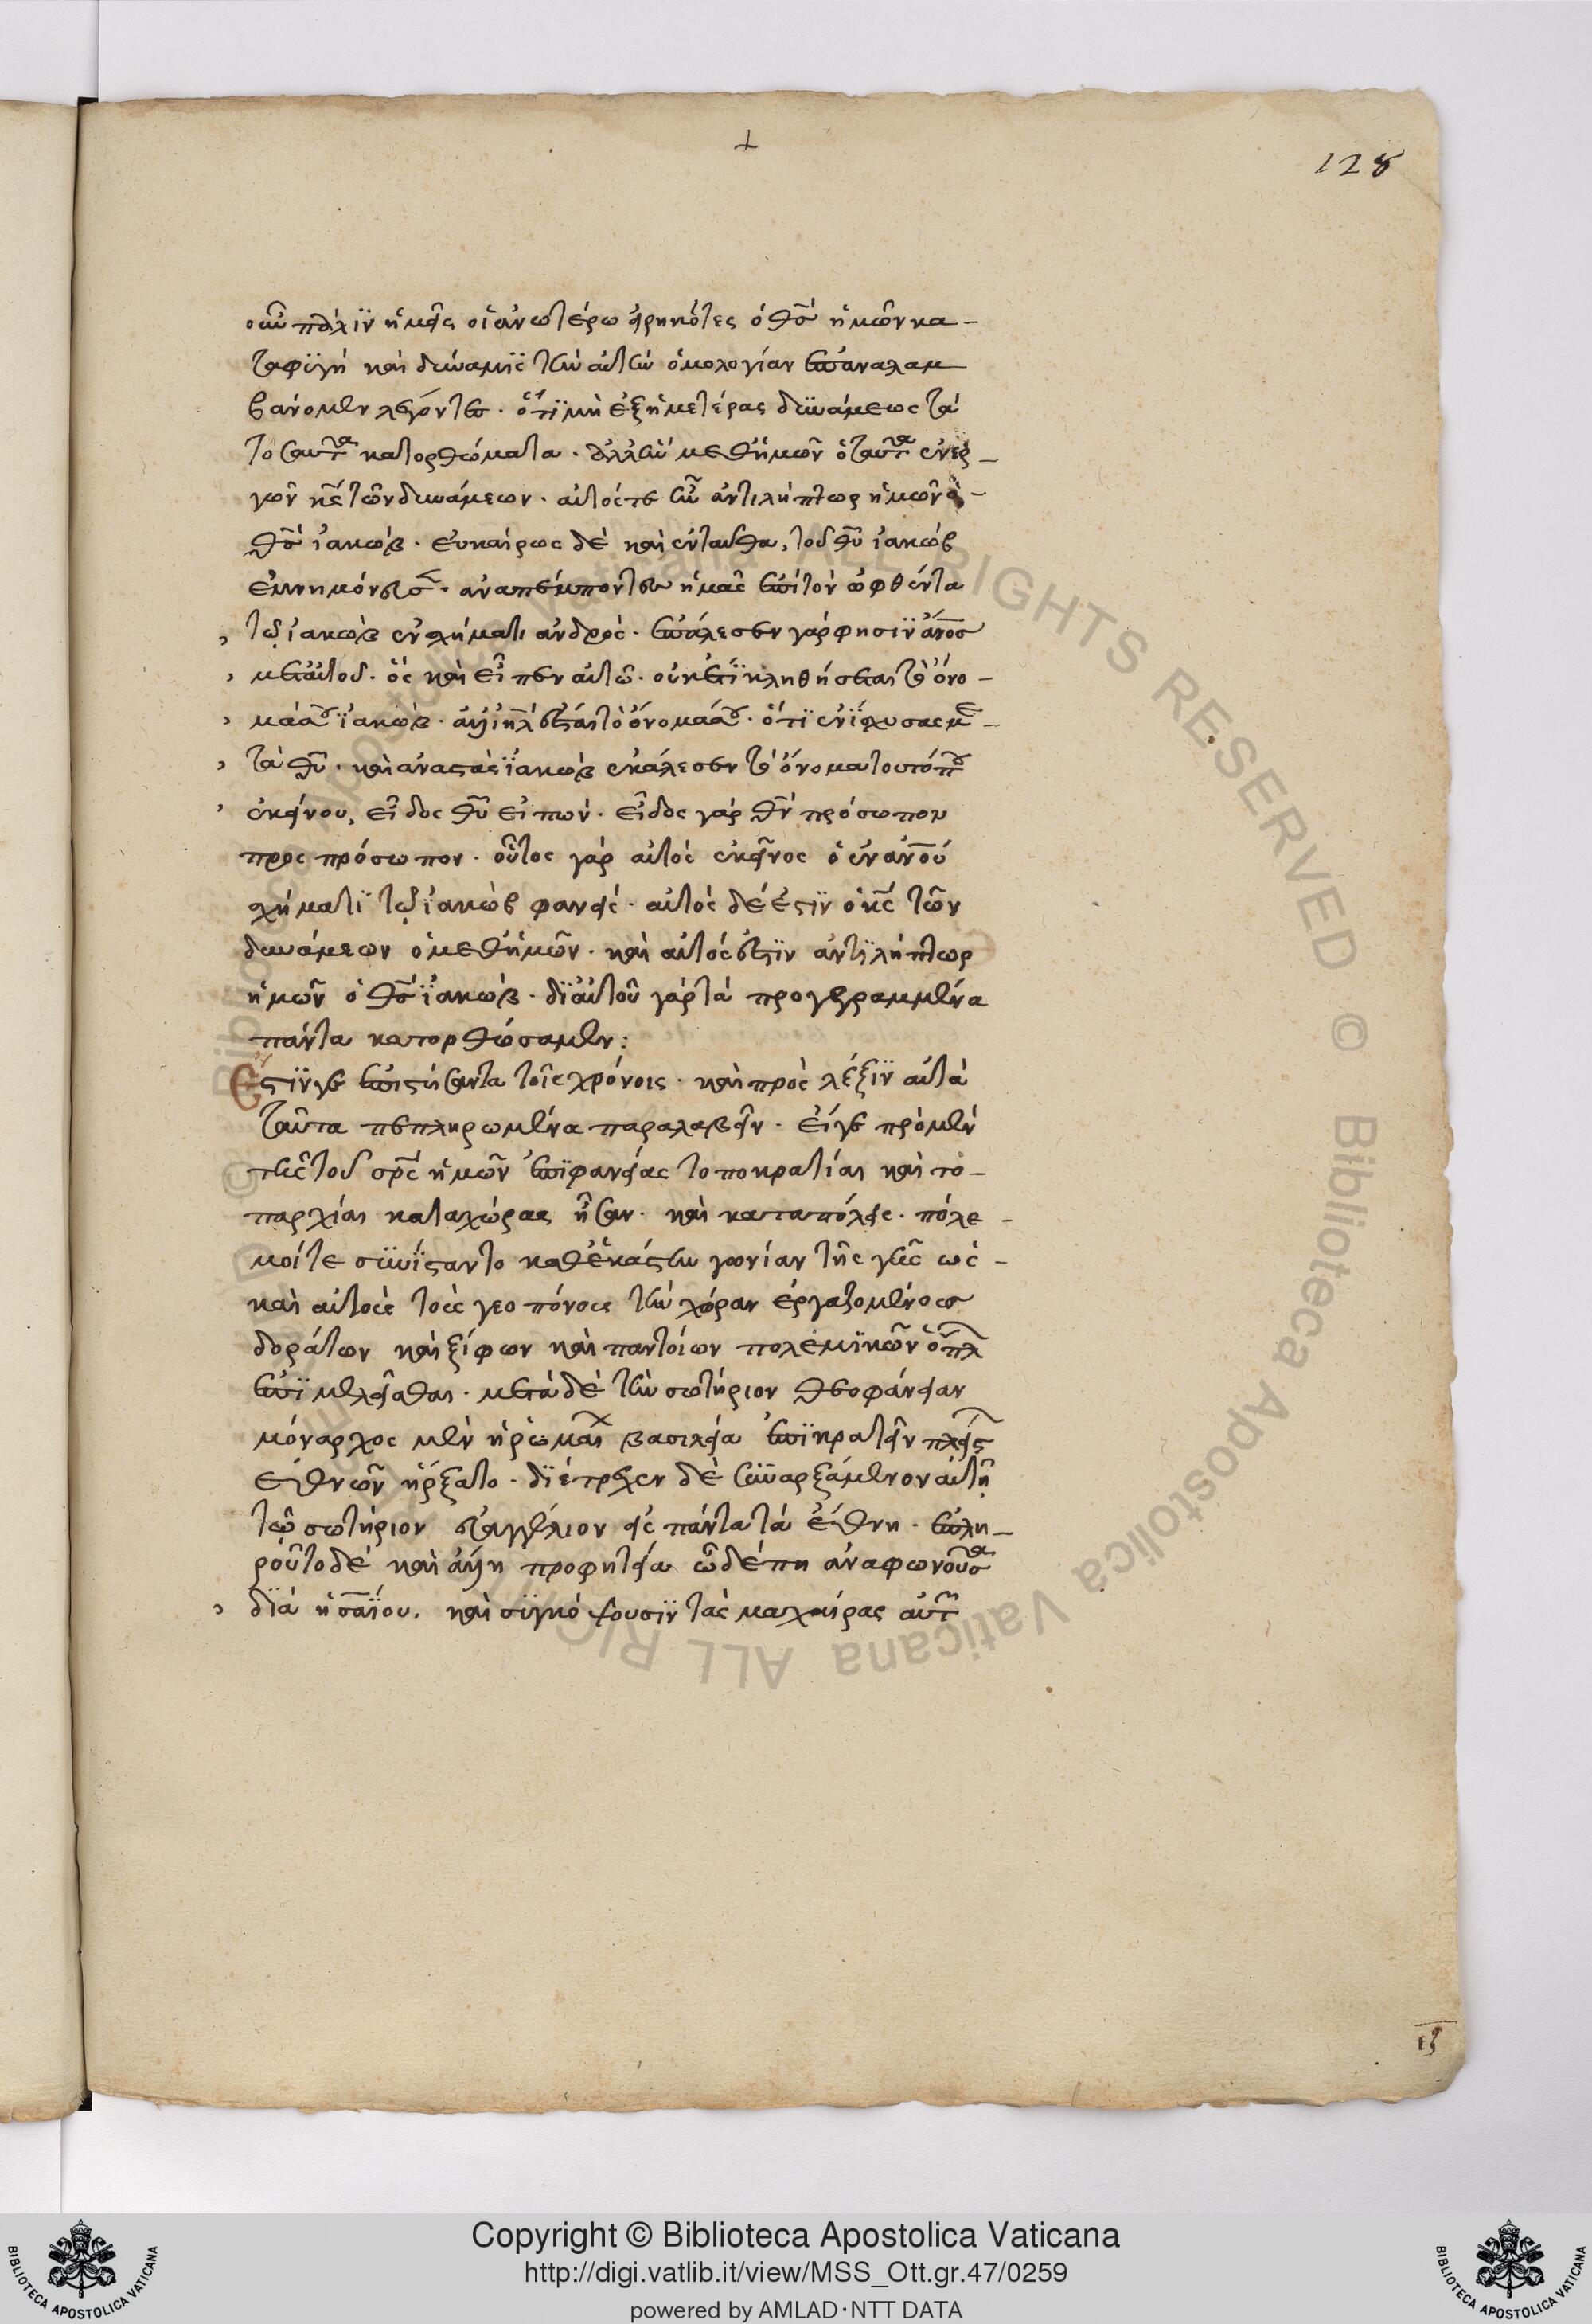 128
οὖν πάλϊν ἡμεῖς οἱ ἀνωτέρω εἰρηκότες ὁ θ̅σ̅ ἡμῶν κα-
ταφϋγὴ καὶ δύναμϊς τὴν αὐτὴν ὁμολογίαν ἐπαναλαμ
βάνομεν λέγοντες · ὅτϊ μὴ ἐξ ἡμετέρας δϋνάμεως τὰ
τοσαῦτα κατορθώματα · ἀλλ' ἦν μεθ' ἡμῶν ὁ ταῦτα ἐνερ-
γῶν κ̅ε̅ τῶν δυνάμεων · αὐτός τε ἦν ἀντιλήπτωρ ἡμῶν ὁ-
θ̅σ̅ ἰακώβ · εὐκαίρως δὲ καὶ ἐνταῦθα, τοῦ θ̅υ̅ ἰακὼβ
ἐμνημόνευσεν · ἀναπέμποντες ἡμᾶς ἐπὶ τὸν ὀφθέντα
τῷ ἰακὼβ ἐν σχήματι ἀνδρὸς · ἐπάλεσεν γάρ φησϊν ἄν̅ο̅σ̅
μετ' αὐτοῦ · ὃς καὶ εἶπεν αὐτῶ · οὐκέτϊ κληθήσεται τὸ ὄνο-
μά σου ϊακώβ · ἀλλ' ἰη̅λ̅ ἔσται τὸ ὄνομά σου · ὅτϊ ἐνΐσχυσας με
τὰ θ̅υ̅ · καὶ ἀναστὰς ϊακὼβ ἐκάλεσεν τὸ ὄνομα τοῦ τόπου
ἐκείνου, εἶδος θ̅υ̅ εἰπών · εἶδος γὰρ θ̅ν̅ πρόσωπον
προς πρόσωπον · οὗτος γὰρ αὐτὸς ἐκεῖνος ὁ ἐν ἀν̅ο̅υ̅
σχήματϊ τῷ ϊακὼβ φανείς · αὐτὸς δέ ἐστϊν ὁ κ̅ς̅ τῶν
δυνάμεων ὁ μεθ' ἡμῶν · καὶ αὐτός ἐστϊν ἀντϊλήπτωρ
ἡμῶν ὁ θ̅σ̅ ϊακώβ · δϊ' αὐτοῦ γὰρ τὰ προγεγραμμένα
πάντα κατορθώσαμεν :
Εστϊν γε ἐπιστήσαντα τοῖς χρόνοις · καὶ πρὸς λέξϊν αὐτὰ
ταῦτα πεπληρωμένα παραλαβεῖν · εἴγε πρὸ μὲν
τῆς τοῦ σ̅ρ̅ς̅ ἡμῶν ἐπϊφανείας τοποκρατίαι καὶ το-
παρχίαι κατα χώρας ἦσαν · καὶ κατα πόλεις · πόλε-
μοί τε σϋνΐσταντο καθ' ἑκάστην γωνίαν τῆς γῆς ὡς-
καὶ αὐτοὺς τοὺς γεοπόνους τὴν χώραν ἐργαζομένους
δοράτων καὶ ξίφων καὶ παντοίων πολεμϊκῶν ὅπλ
ἐπϊμελεῖσθαι · μετὰ δὲ τὴν σωτήριον θεοφάνειαν
μόναρχος μὲν ἡ ῥωμαί βασιλεία ἐπϊκρατεῖν πλείς
ἐθνῶν ἤρξατο · δϊέτρεχεν δὲ σϋναρξάμενον αὐτῆ
τῶ σωτήριον εὐαγγέλιον εἰς πάντα τὰ ἔθνη · ἐπλη-
ροῦτο δὲ καὶ ἄλλη προφητεία ὧδέ πη ἀναφωνοῦσα
δϊὰ ἡσαΐου. καὶ σϋγκόψουσϊν τὰς μαχαίρας αὐτ
ιζ
Copyright © Biblioteca Apostolica Vaticana
http://digi.vatlib.it/view/MSS_Ott.gr.47/0259
powered by AMLAD·NTT DATA
BIBLIOTECA APOSTOLICA VATICANA
BIBLIOTECA APOSTOLICA VATICANA
© Biblioteca Apostolica Vaticana ALL RIGHTS RESERVED © Biblioteca Apostolica Vaticana ALL RIGHTS RESERVED